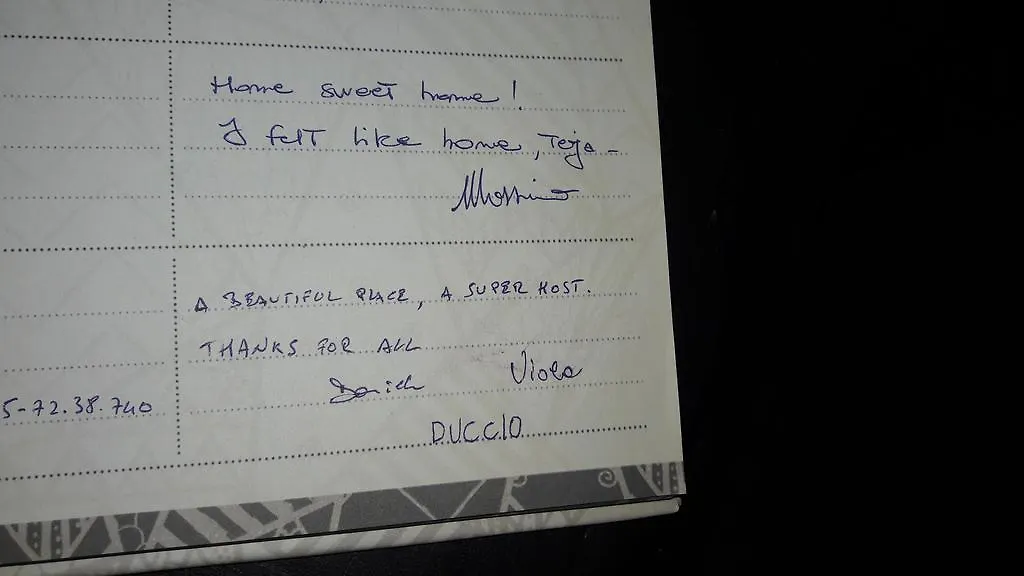 Home sweet home!
I felt like home, Terja -
Massimo
A BEAUTIFUL PLACE, A SUPER HOST.
THANKS FOR ALL
Viola
5-72.38.740
DUCCIO